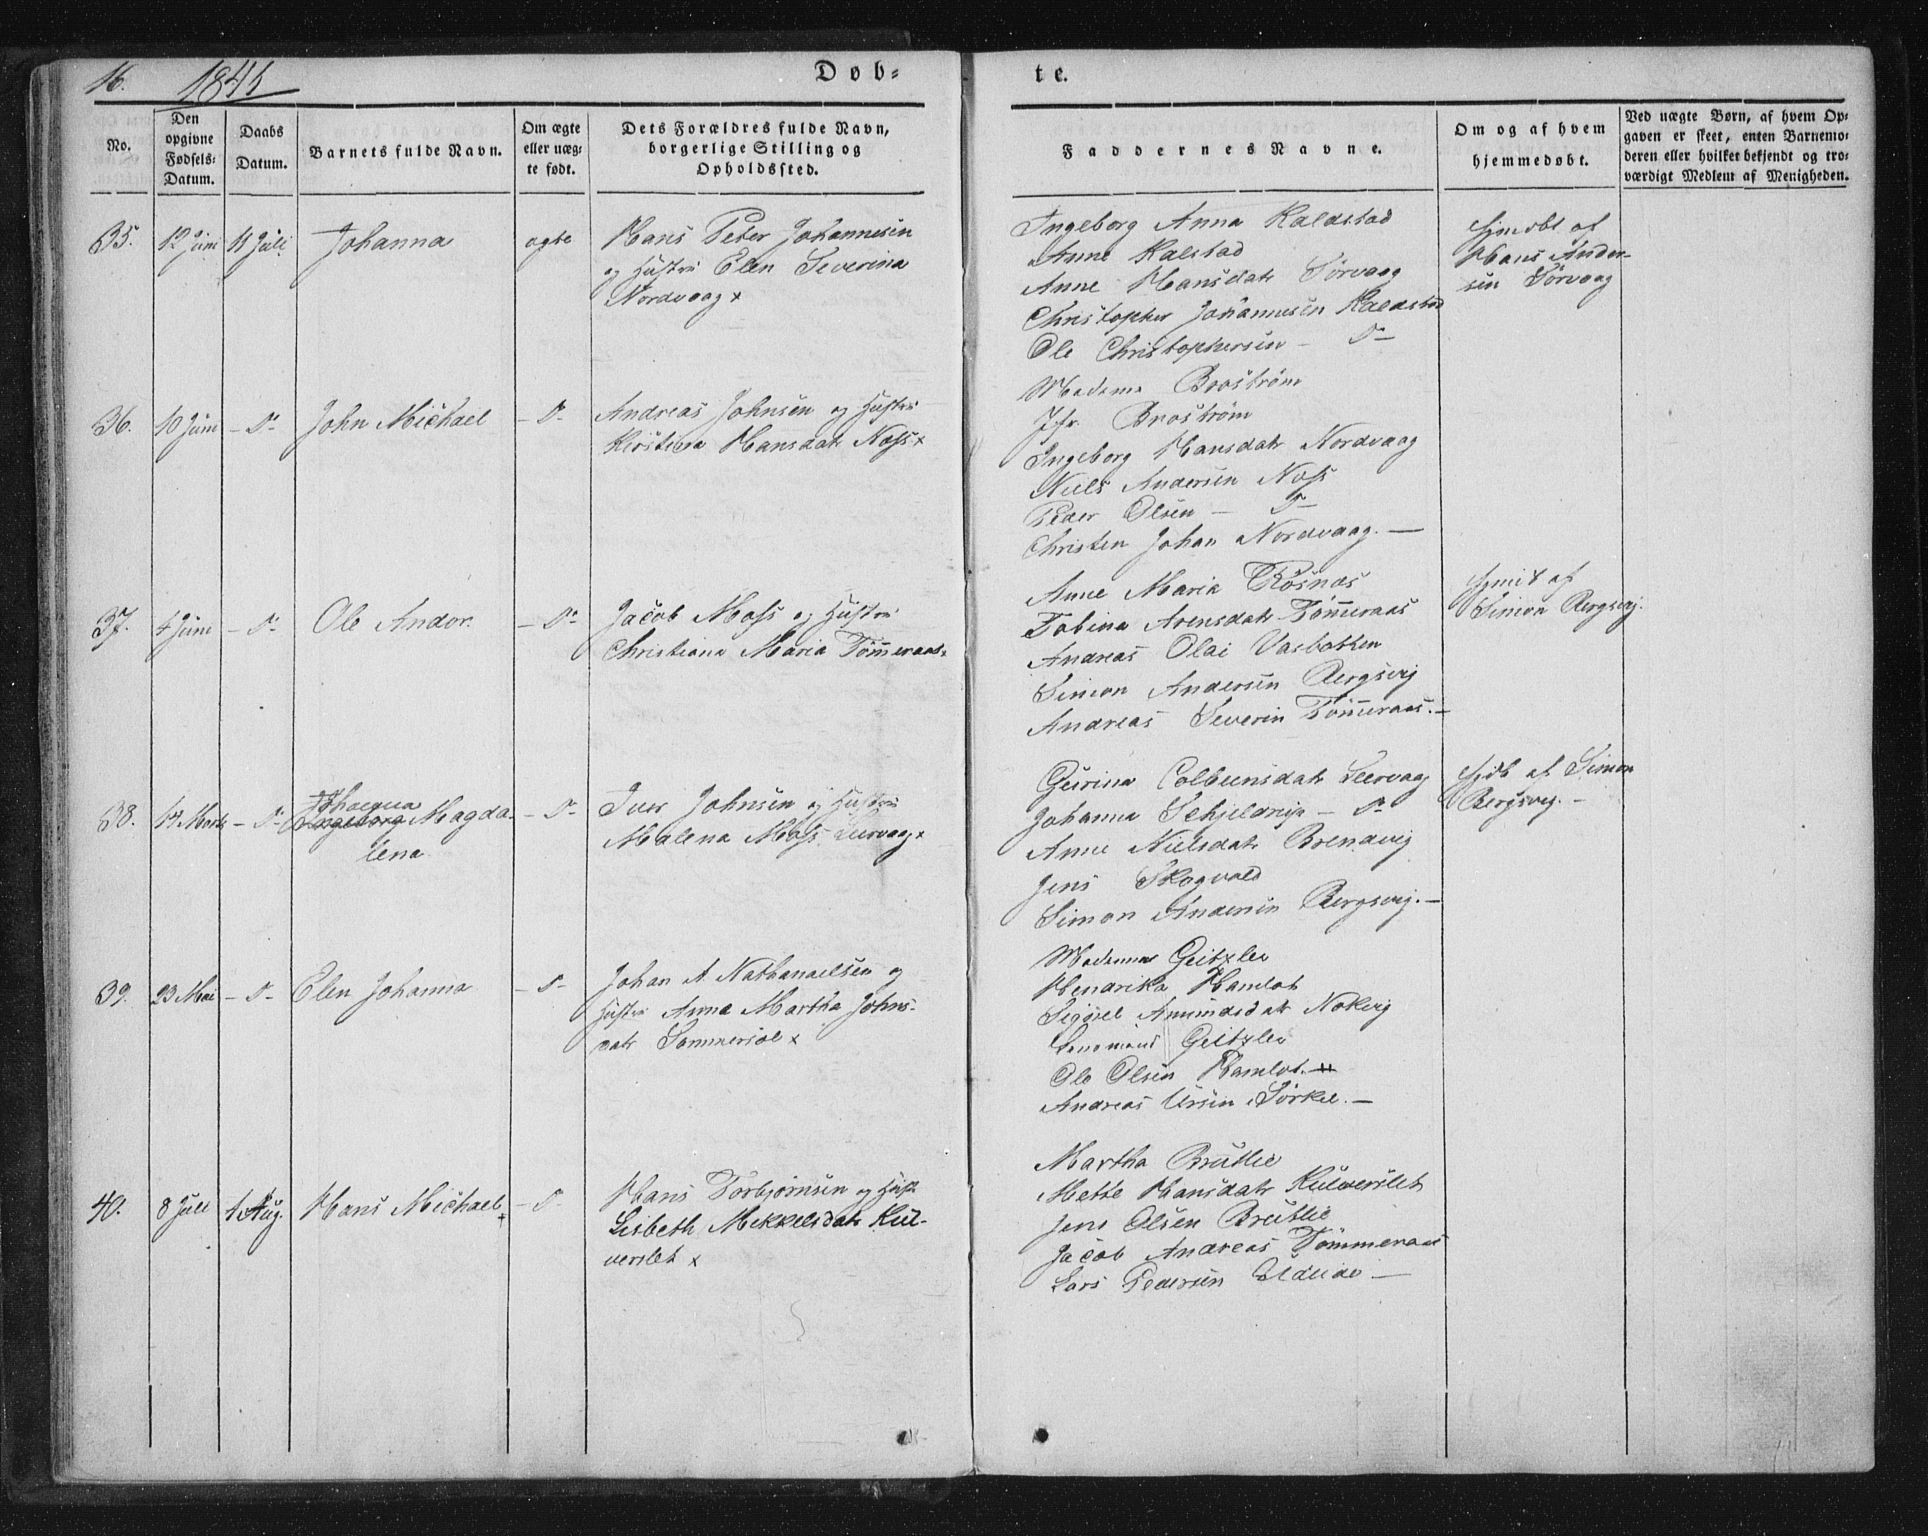 16. 1841
Døb-
te.
No.
Den opgivne Fødsels-Datum.
Daabs Datum.
Barnets fulde Navn.
Om ægte eller uæg-te født.
Dets Forældres fulde Navn, borgerlige Stilling og Opholdssted.
Faddernes Navne.
Om og af hvem hjemmedøbt.
Ved uægte Børn, af hvem Op-
gaven er skeet, enten Barnemo-
deren eller hvilket bekjendt og tro-
værdigt Medlem af Menigheden.
35. 12 Juni 11 Juli Johanna ægte Hans Peter Johannesen
og Hustru Elen Severina
Nordvaag x
Ingeborg Anna Kaldstad
Anne Kalstad
Anne Hansdatr Sørvaag
Christopher Johannesen Kaldstad
Ole Christophersen - D-
Hjmdbt af
Hans Ander-
sen Sørvaag
36. 10 Juni - D- John Michael - D- Andreas Johnsen og Hustru
Kirstina Hansdatr Næss x
Madame Broström
Jfr. Broström
Ingeborg Hansdatr Nordvaag
Niels Andersen Næss
Peder Olsen - D-
Christen Johan Nordvaag. -
37. 4 Juni - D- Ole Andor. - D- Jacob Moss og Hustru
Christiana Maria Tömmeraas x
Anne Maria Røsnæs
Tobina Arensdatr Tömmeraas
Andreas Olai Vasbotten
Simon Andersen Bergsvig
Andreas Severin Tömmeraas. -
af
Simon Bergsvig.
38. 14 Marts - D- Ingeborg Magda-
lena - D- Iver Johnsen og Hustru
Malena Moss Leervaag x
Gurina Colbensdatr Leervaag
Johanna - D-
Anne Nielsdatr Brendvig
Jens Skogvold
Simon Andersen Bergsvig. -
Hjdb af Simon
Bergsvig. -
39. 23 Mai - D- Elen Johanna - D- Johan A Nathanaelsen og
Hustru Anna Martha Johns-
datr Sommersæl x
Madame Geitzler
Hendrika Hamlot
Amundsdatr Nokvig
Geitzler
Ole Olsen Hamlot. -
Andreas Ursin Sørkil. -
40. 8 Juli 1 Aug. Hans Michael + - D- Hans Torbjørnsen og Hust
Lisbeth Mikkelsdatr Kul-
verslet x
Martha Brutlie
Mette Hansdatr Kulverslet
Jens Olsen Brutlie
Jacob Andreas Tömmeraas
Lars Pedersen Eldeide -